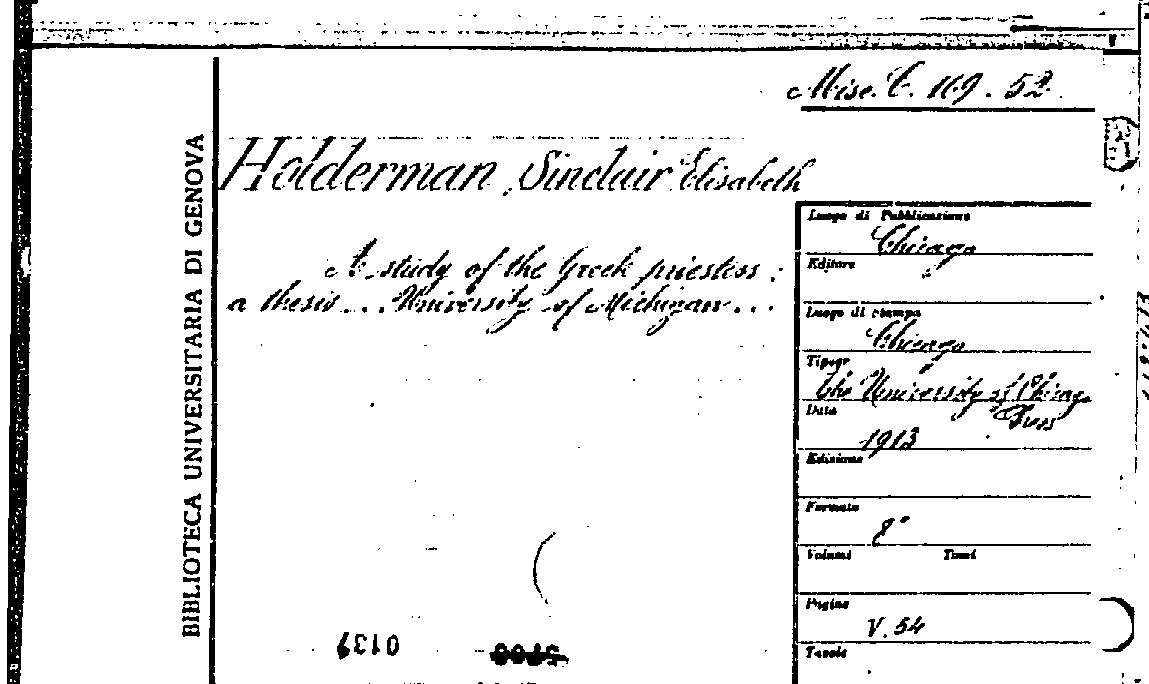 Misc. C. 119. 52
BIBLIOTECA UNIVERSITARIA DI GENOVA
Holderman, Sinclair Elisabeth
A study of the Greek priestess:
a thesis... University of Michigan...
Luogo di Pubblicazione
Chicago
Editore
Luogo di stampa
Chicago
Tipogr
the University of Chicago
Press
Data
1913
Edizione
Formato
8°
Volumi Tomi
Pagine
V. 54
Tavole